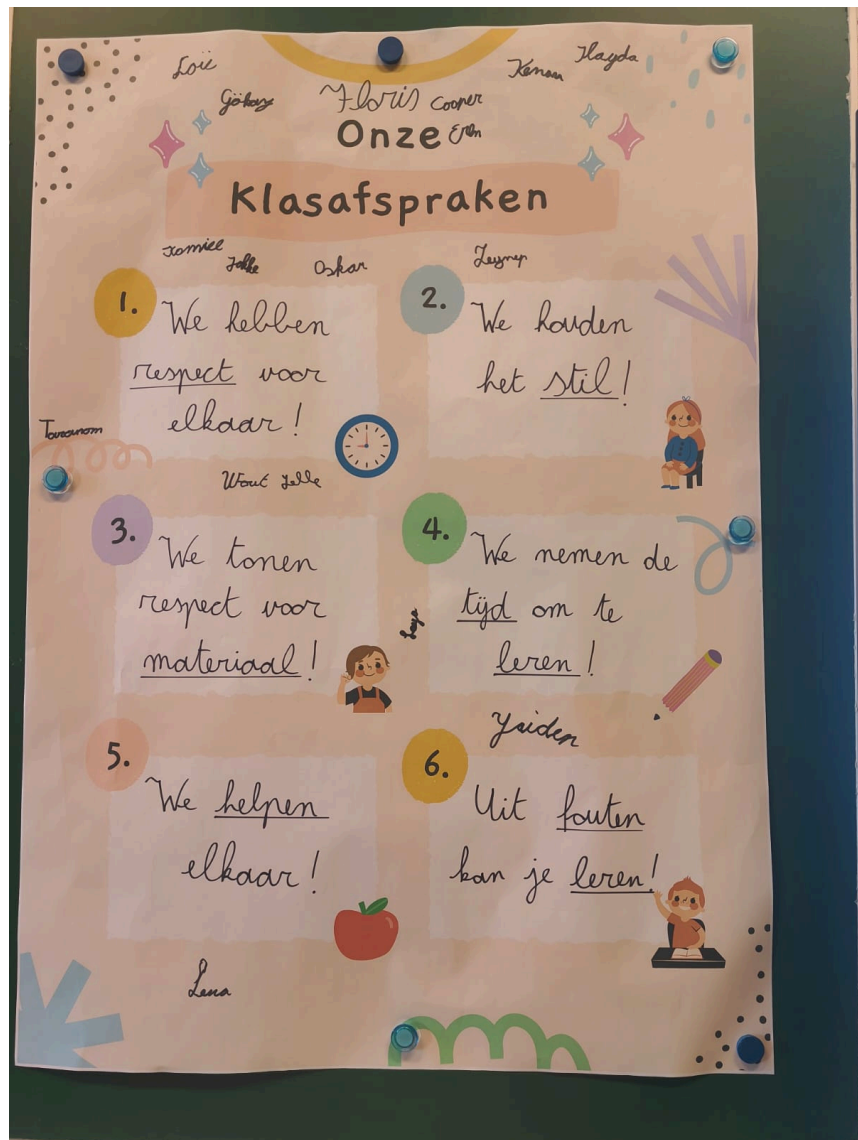 Loïc
Kenan Hayda
Gökay Floris Cooper
Onze
Klasafspraken
Kamiel
Oskar Zeynep
1. We hebben
respect voor
elkaar!
2. We houden
het stil!
Wout Jelle
3. We tonen
respect voor
materiaal!
4. We nemen de
tijd om te
leren!
5. We helpen
elkaar!
6. Uit fouten
kan je leren!
Lena